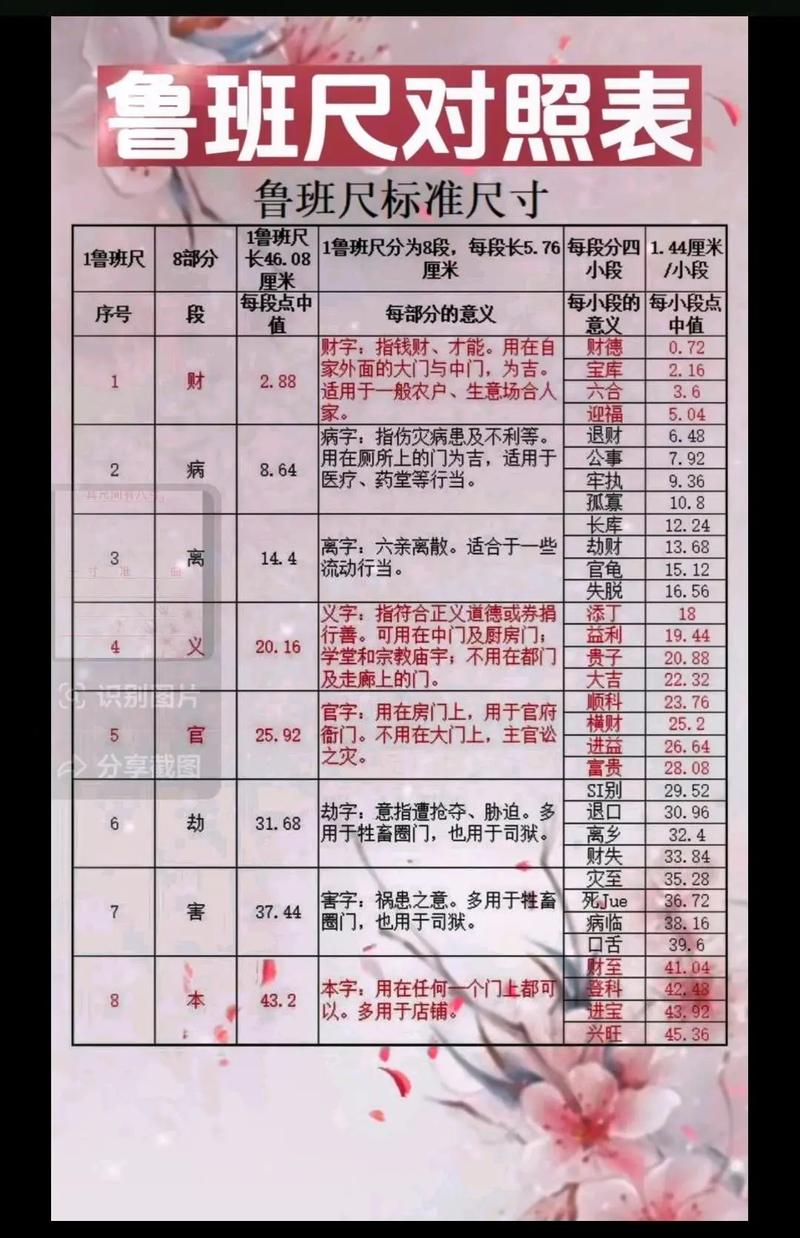 鲁班尺对照表
鲁班尺标准尺寸
1鲁班尺 8部分 1鲁班尺长46.08厘米 1鲁班尺分为8段，每段长5.76厘米 每段分四小段 1.44厘米/小段
序号 段 每段点中值 每部分的意义 每小段的意义 每小段点中值
1 财 2.88
财字：指钱财、才能。用在自
家外面的大门与中门，为吉。
适用于一般农户、生意场合人
家。
财德 0.72
宝库 2.16
六合 3.6
迎福 5.04
2 病 8.64
病字：指伤灾病患及不利等。
用在厕所上的门为吉，适用于
医疗、药堂等行当。
退财 6.48
公事 7.92
牢执 9.36
孤寡 10.8
3 离 14.4
离字：六亲离散。适合于一些
流动行当。
长库 12.24
劫财 13.68
官龟 15.12
失脱 16.56
4 义 20.16
义字：指符合正义道德或券捐
行善。可用在中门及厨房门；
学堂和宗教庙宇；不用在都门
及走廊上的门。
添丁 18
益利 19.44
贵子 20.88
大吉 22.32
5 官 25.92
官字：用在房门上，用于官府
衙门。不用在大门上，主官讼
之灾。
顺科 23.76
横财 25.2
进益 26.64
富贵 28.08
6 劫 31.68
劫字：意指遭抢夺、胁迫。多
用于牲畜圈门，也用于司狱。
SI别 29.52
退口 30.96
离乡 32.4
财失 33.84
7 害 37.44
害字：祸患之意。多用于牲畜
圈门，也用于司狱。
灾至 35.28
死Jue 36.72
病临 38.16
口舌 39.6
8 本 43.2
本字：用在任何一个门上都可
以。多用于店铺。
财至 41.04
登科 42.48
进宝 43.92
兴旺 45.36
识别图片
分享截图